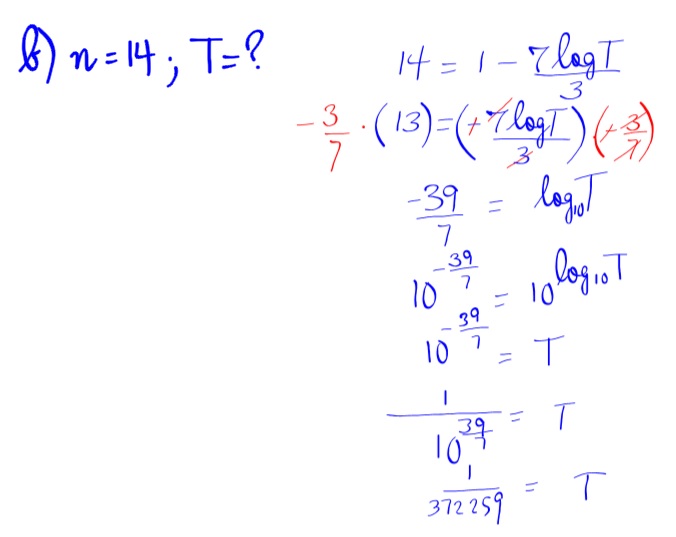 b) n = 14 ; T = ?
14 = 1 - 7logT/3
-3/7 · (13) = (+7logT/3)(+3/7)
-39/7 = log₁₀T
10^(-39/7) = 10^(log₁₀T)
10^(-39/7) = T
1/10^(39/7) = T
1/372259 = T